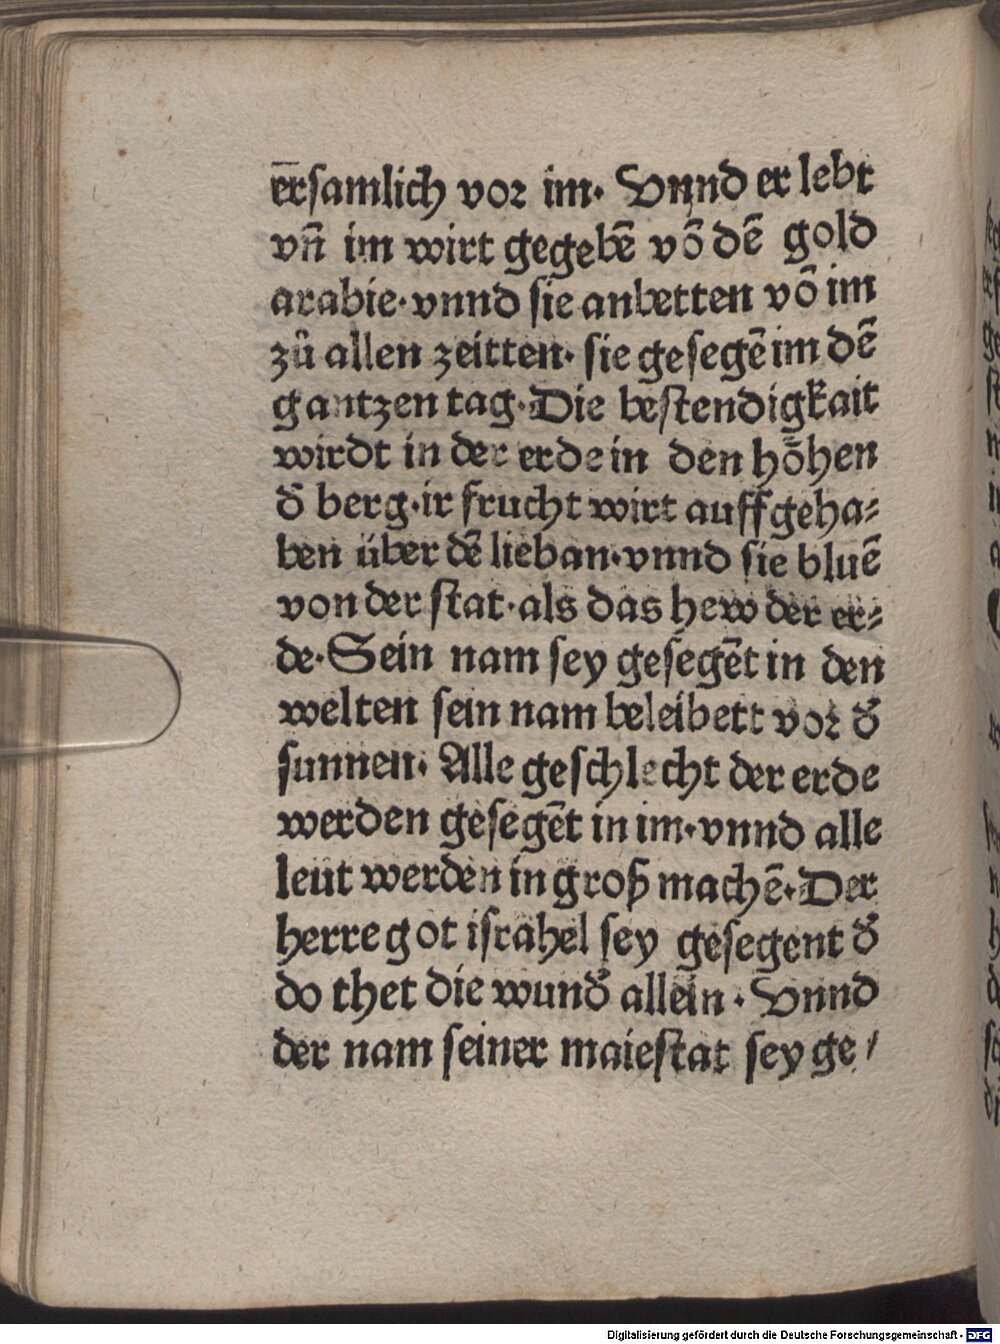 er̄samlich vor im· Vnnd er lebt
vn̄ im wirt gegebē võ dē gold
arabie·vnnd sie anbetten võ im
zů allen zeitten· sie gesegē im dē
gantzen tag·Die bestendigkait
wirdt in der erde in den hőhen
đ berg·ir frucht wirt auffgeha⸗
ben über dē lieban·vnnd sie bluē
von der stat·als das hew der er⸗
de·Sein nam sey gesegēt in den
welten sein nam beleibett vor đ
sunnen· Alle geschlecht der erde
werden gesegēt in im·vnnd alle
leüt werden in groß machē·Der
herre got israhel sey gesegent đ
do thet die wunđ allein · Vnnd
der nam seiner maiestat sey ge /
Digitalisierung gefördert durch die Deutsche Forschungsgemeinschaft - DFG